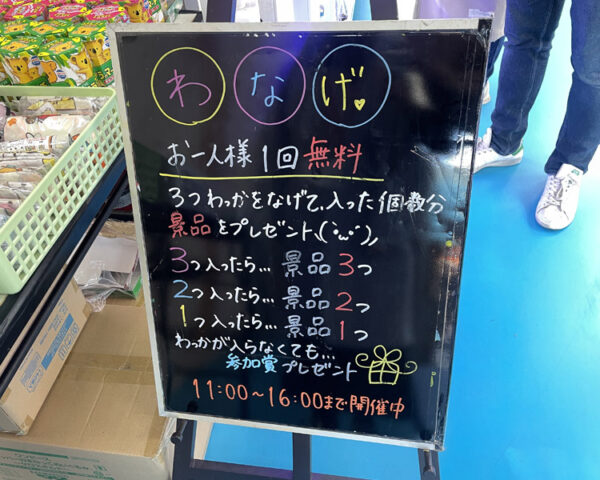 わなげ♥
お一人様1回無料
3つわっかをなげて、入った個数分
景品をプレゼント(・ω・)
3つ入ったら… 景品3つ
2つ入ったら… 景品2つ
1つ入ったら… 景品1つ
わっかが入らなくても…
参加賞プレゼント
11:00~16:00まで開催中